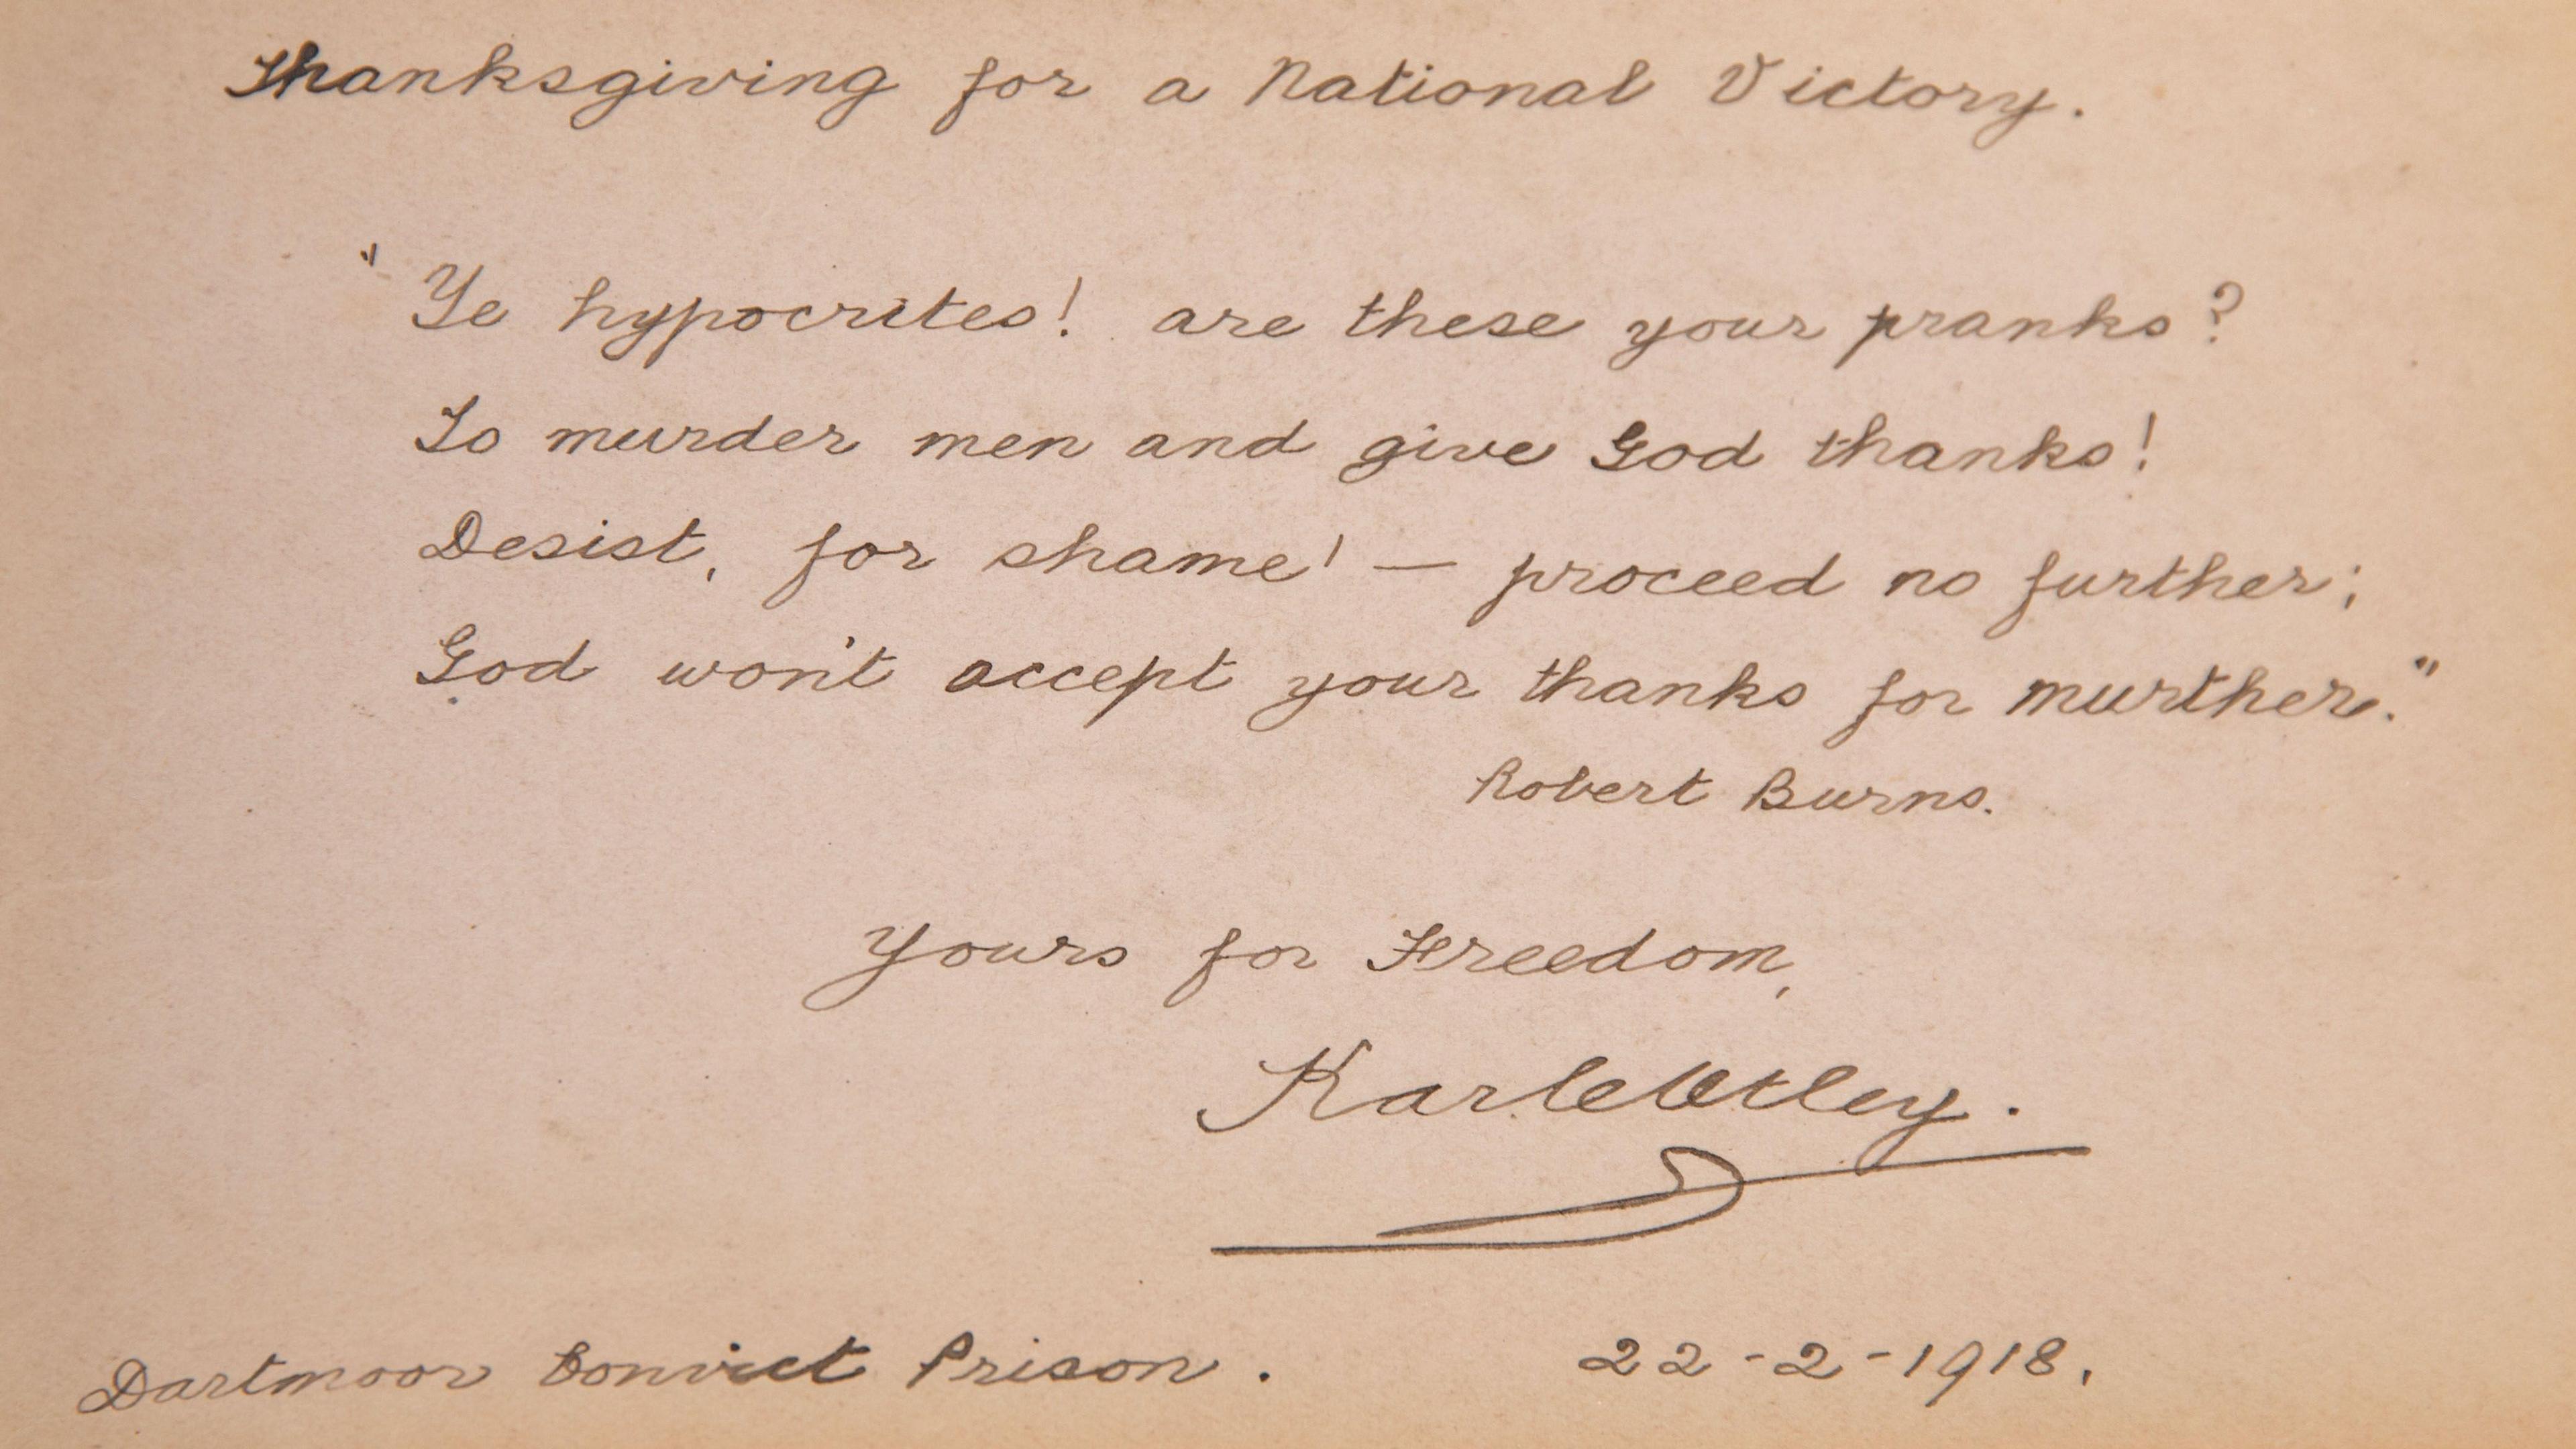 Thanksgiving for a National Victory.
"Ye hypocrites! are these your pranks?
To murder men and give God thanks!
Desist, for shame! — proceed no further;
God won't accept your thanks for murther."
Robert Burns.
Yours for Freedom,
Dartmoor Convict Prison.
22-2-1918.